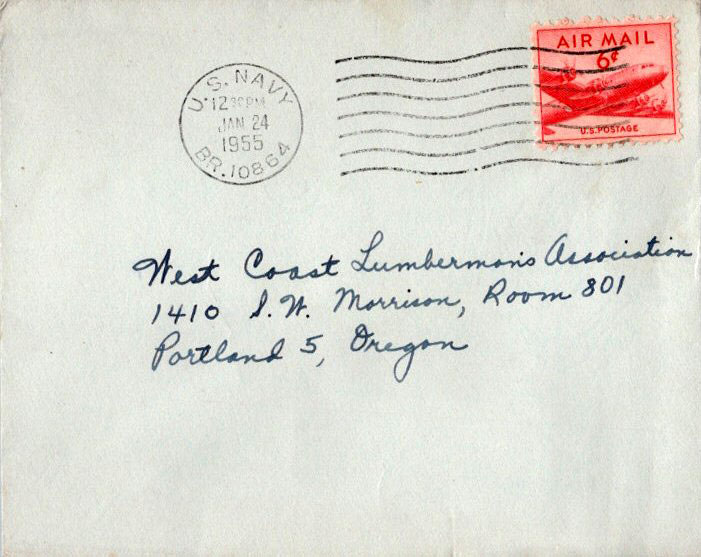 U.S. NAVY
12 30 PM
JAN 24
1955
BR. 10864
AIR MAIL
6¢
U.S. POSTAGE
West Coast Lumberman's Association
1410 S.W. Morrison, Room 801
Portland 5, Oregon